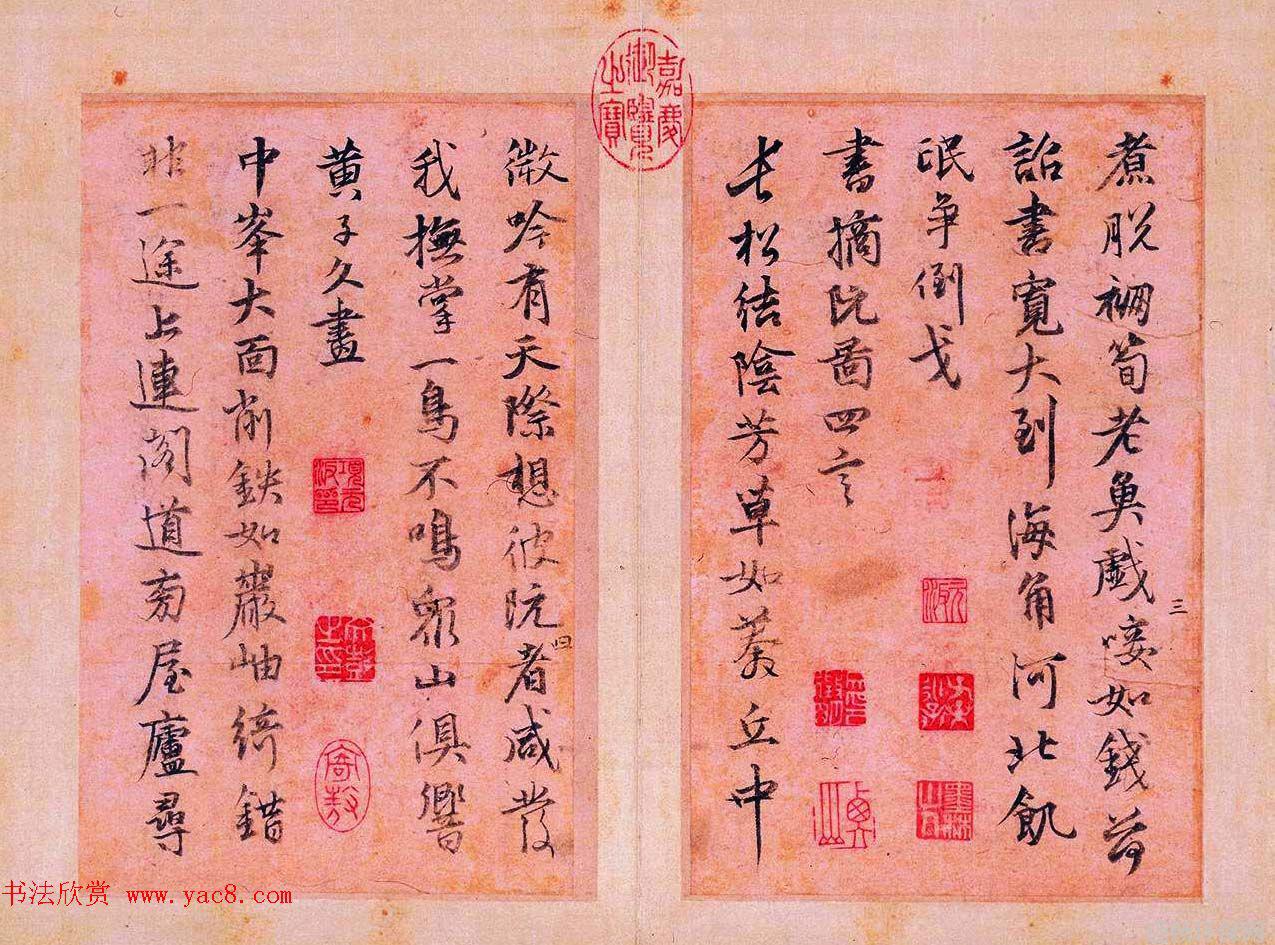 煮脱襧筍老魚戯唼如錢荷
詔書寬大到海角河北飢
氓争倒戈
書摘阮啚四言
長松结陰芳草如養丘中
微吟有天際想彼阮者咸發
我撫掌一鳥不鳴眾山俱響
黄子久畫
中峯大面削鉄如巖岫綺錯
非一途上連閣道旁屋廬尋
三
四
嘉慶
御覽
之寶
书法欣赏 www.yac8.com